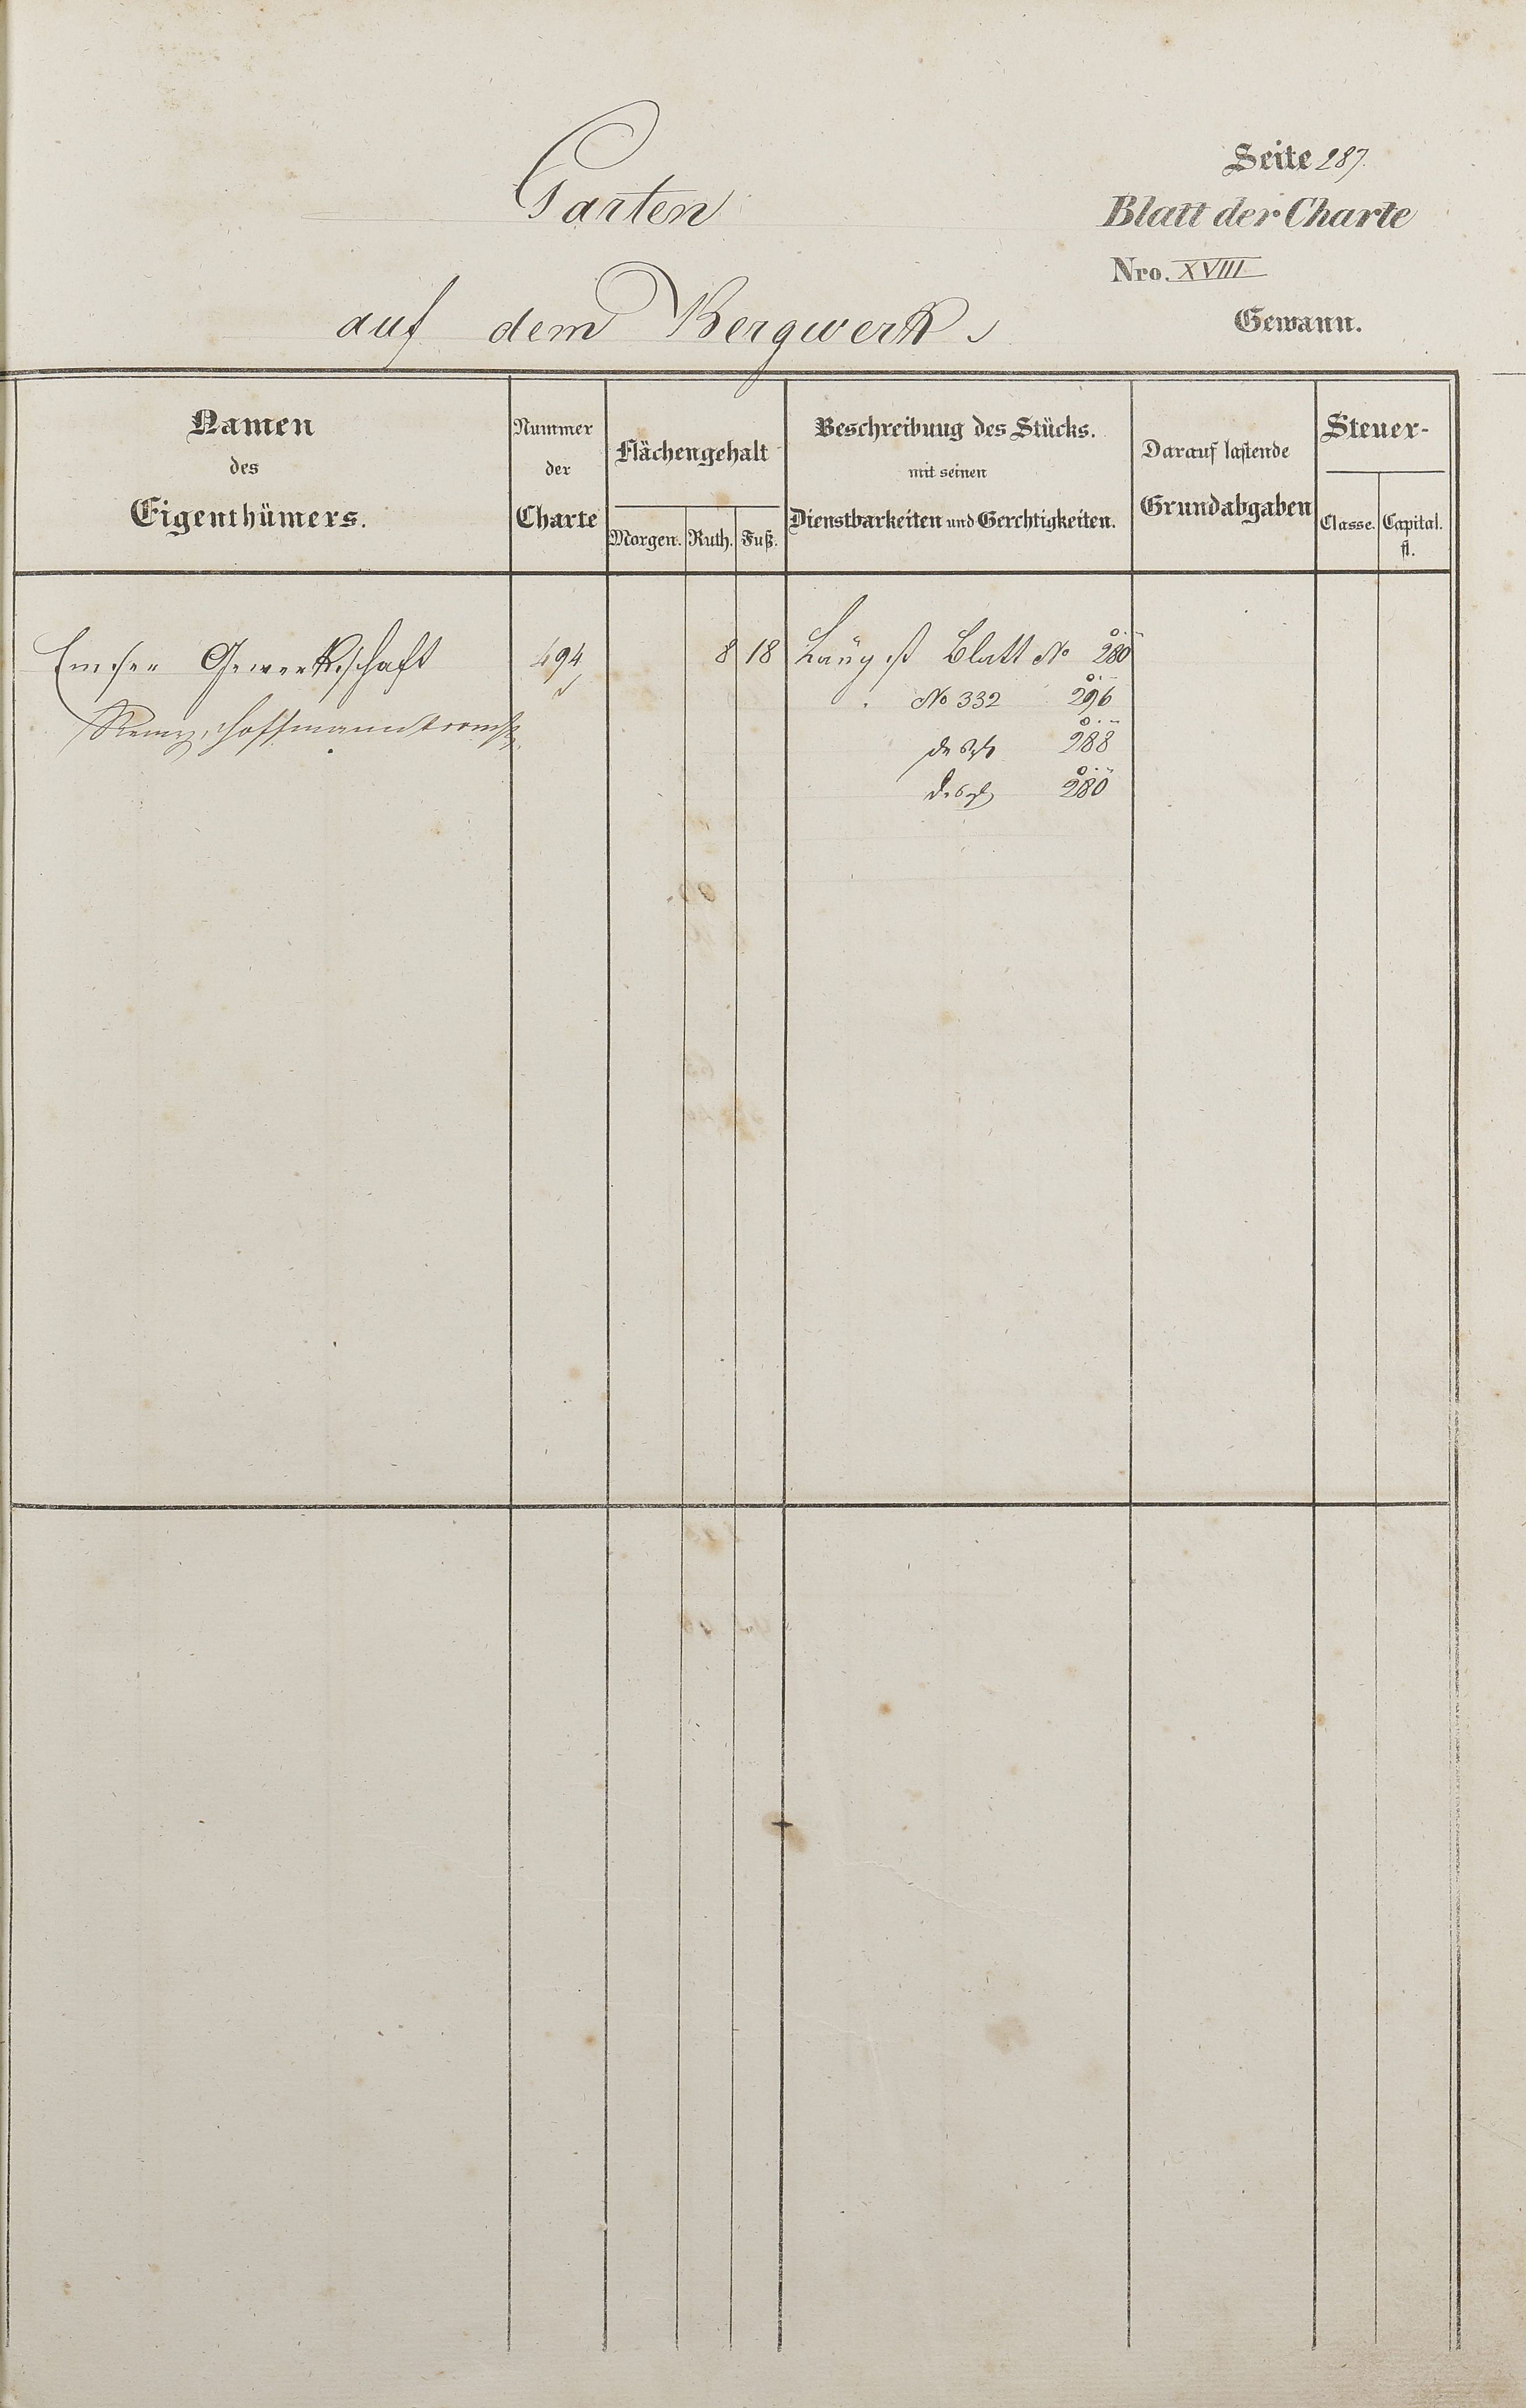 Seite 287.
Garten
Blatt der Charte
Nro. XVIII
auf dem Bergwerk
Gewann.
Namen des Eigenthümers.
Nummer der Charte
Flächengehalt
Morgen. Ruth. Fuß.
Beschreibung des Stücks.
mit seinen
Dienstbarkeiten und Gerchtigkeiten.
Darauf lastende
Grundabgaben
Steuer-
Classe. Capital.
fl.
Emser Gewerkschaft 494 8 18 Längst Blatt No 280
No 332 296
Hoffmann
desgl 288
desgl 280